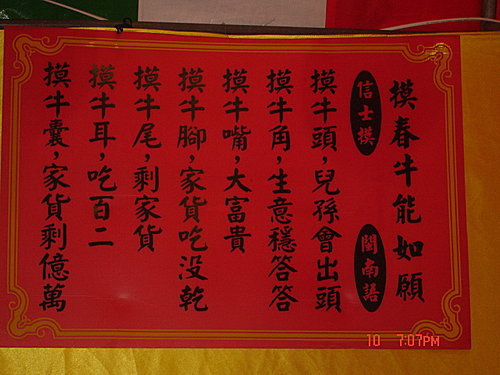 摸春牛能如願
信士摸
閩南語
摸牛頭，兒孫會出頭
摸牛角，生意穩答答
摸牛嘴，大富貴
摸牛腳，家貨吃没乾
摸牛尾，剩家貨
摸牛耳，吃百二
摸牛囊，家貨剩億萬
10 7:07PM